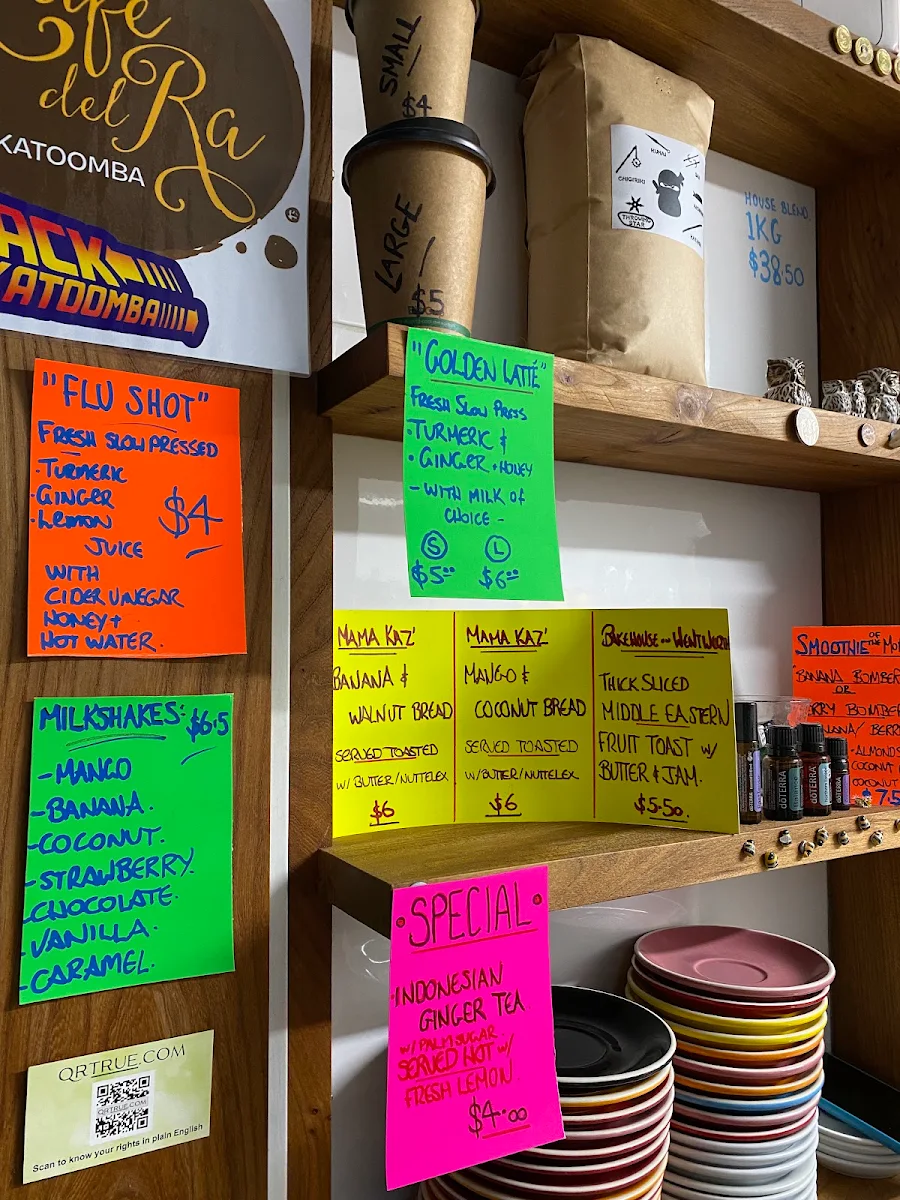 del Ra
KATOOMBA
KATOOMBA
SMALL
$4
LARGE
$5
THROWING
STAR
HOUSE BLEND
1KG
$38.50
"FLU SHOT"
FRESH SLOW PRESSED
·TURMERIC
·GINGER
·LEMON
$4
JUICE
WITH
CIDER VINEGAR
HONEY +
HOT WATER.
"GOLDEN LATTÉ"
FRESH SLOW PRESS
·TURMERIC &
·GINGER + HONEY
- WITH MILK OF
CHOICE -
S L
$5.00 $6.00
MILKSHAKES: $6.5
-MANGO
-BANANA.
-COCONUT.
-STRAWBERRY.
-CHOCOLATE.
-VANILLA.
-CARAMEL.
MAMA KAZ'
BANANA &
WALNUT BREAD
SERVED TOASTED
W/BUTTER/NUTTELEX
$6
MAMA KAZ'
MANGO &
COCONUT BREAD
SERVED TOASTED
W/BUTTER/NUTTELEX
$6
BAKEHOUSE ON WENTWORTH
THICK SLICED
MIDDLE EASTERN
FRUIT TOAST W/
BUTTER & JAM.
$5.50.
SMOOTHIE OF THE
BANANA BOMBER
OR
BOMBER
BERR
·ALMOND
COCONUT
COCONUT
$7.5
dōTERRA
dōTERRA
·SPECIAL·
·INDONESIAN
GINGER TEA
W/ PALM SUGAR
SERVED HOT W/
FRESH LEMON.
$4.00
QRTRUE.COM
QRTRUE.COM
Scan to know your rights in plain English